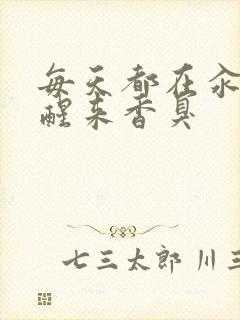 每天都在汆
醒来香臭
七三太郎 川三